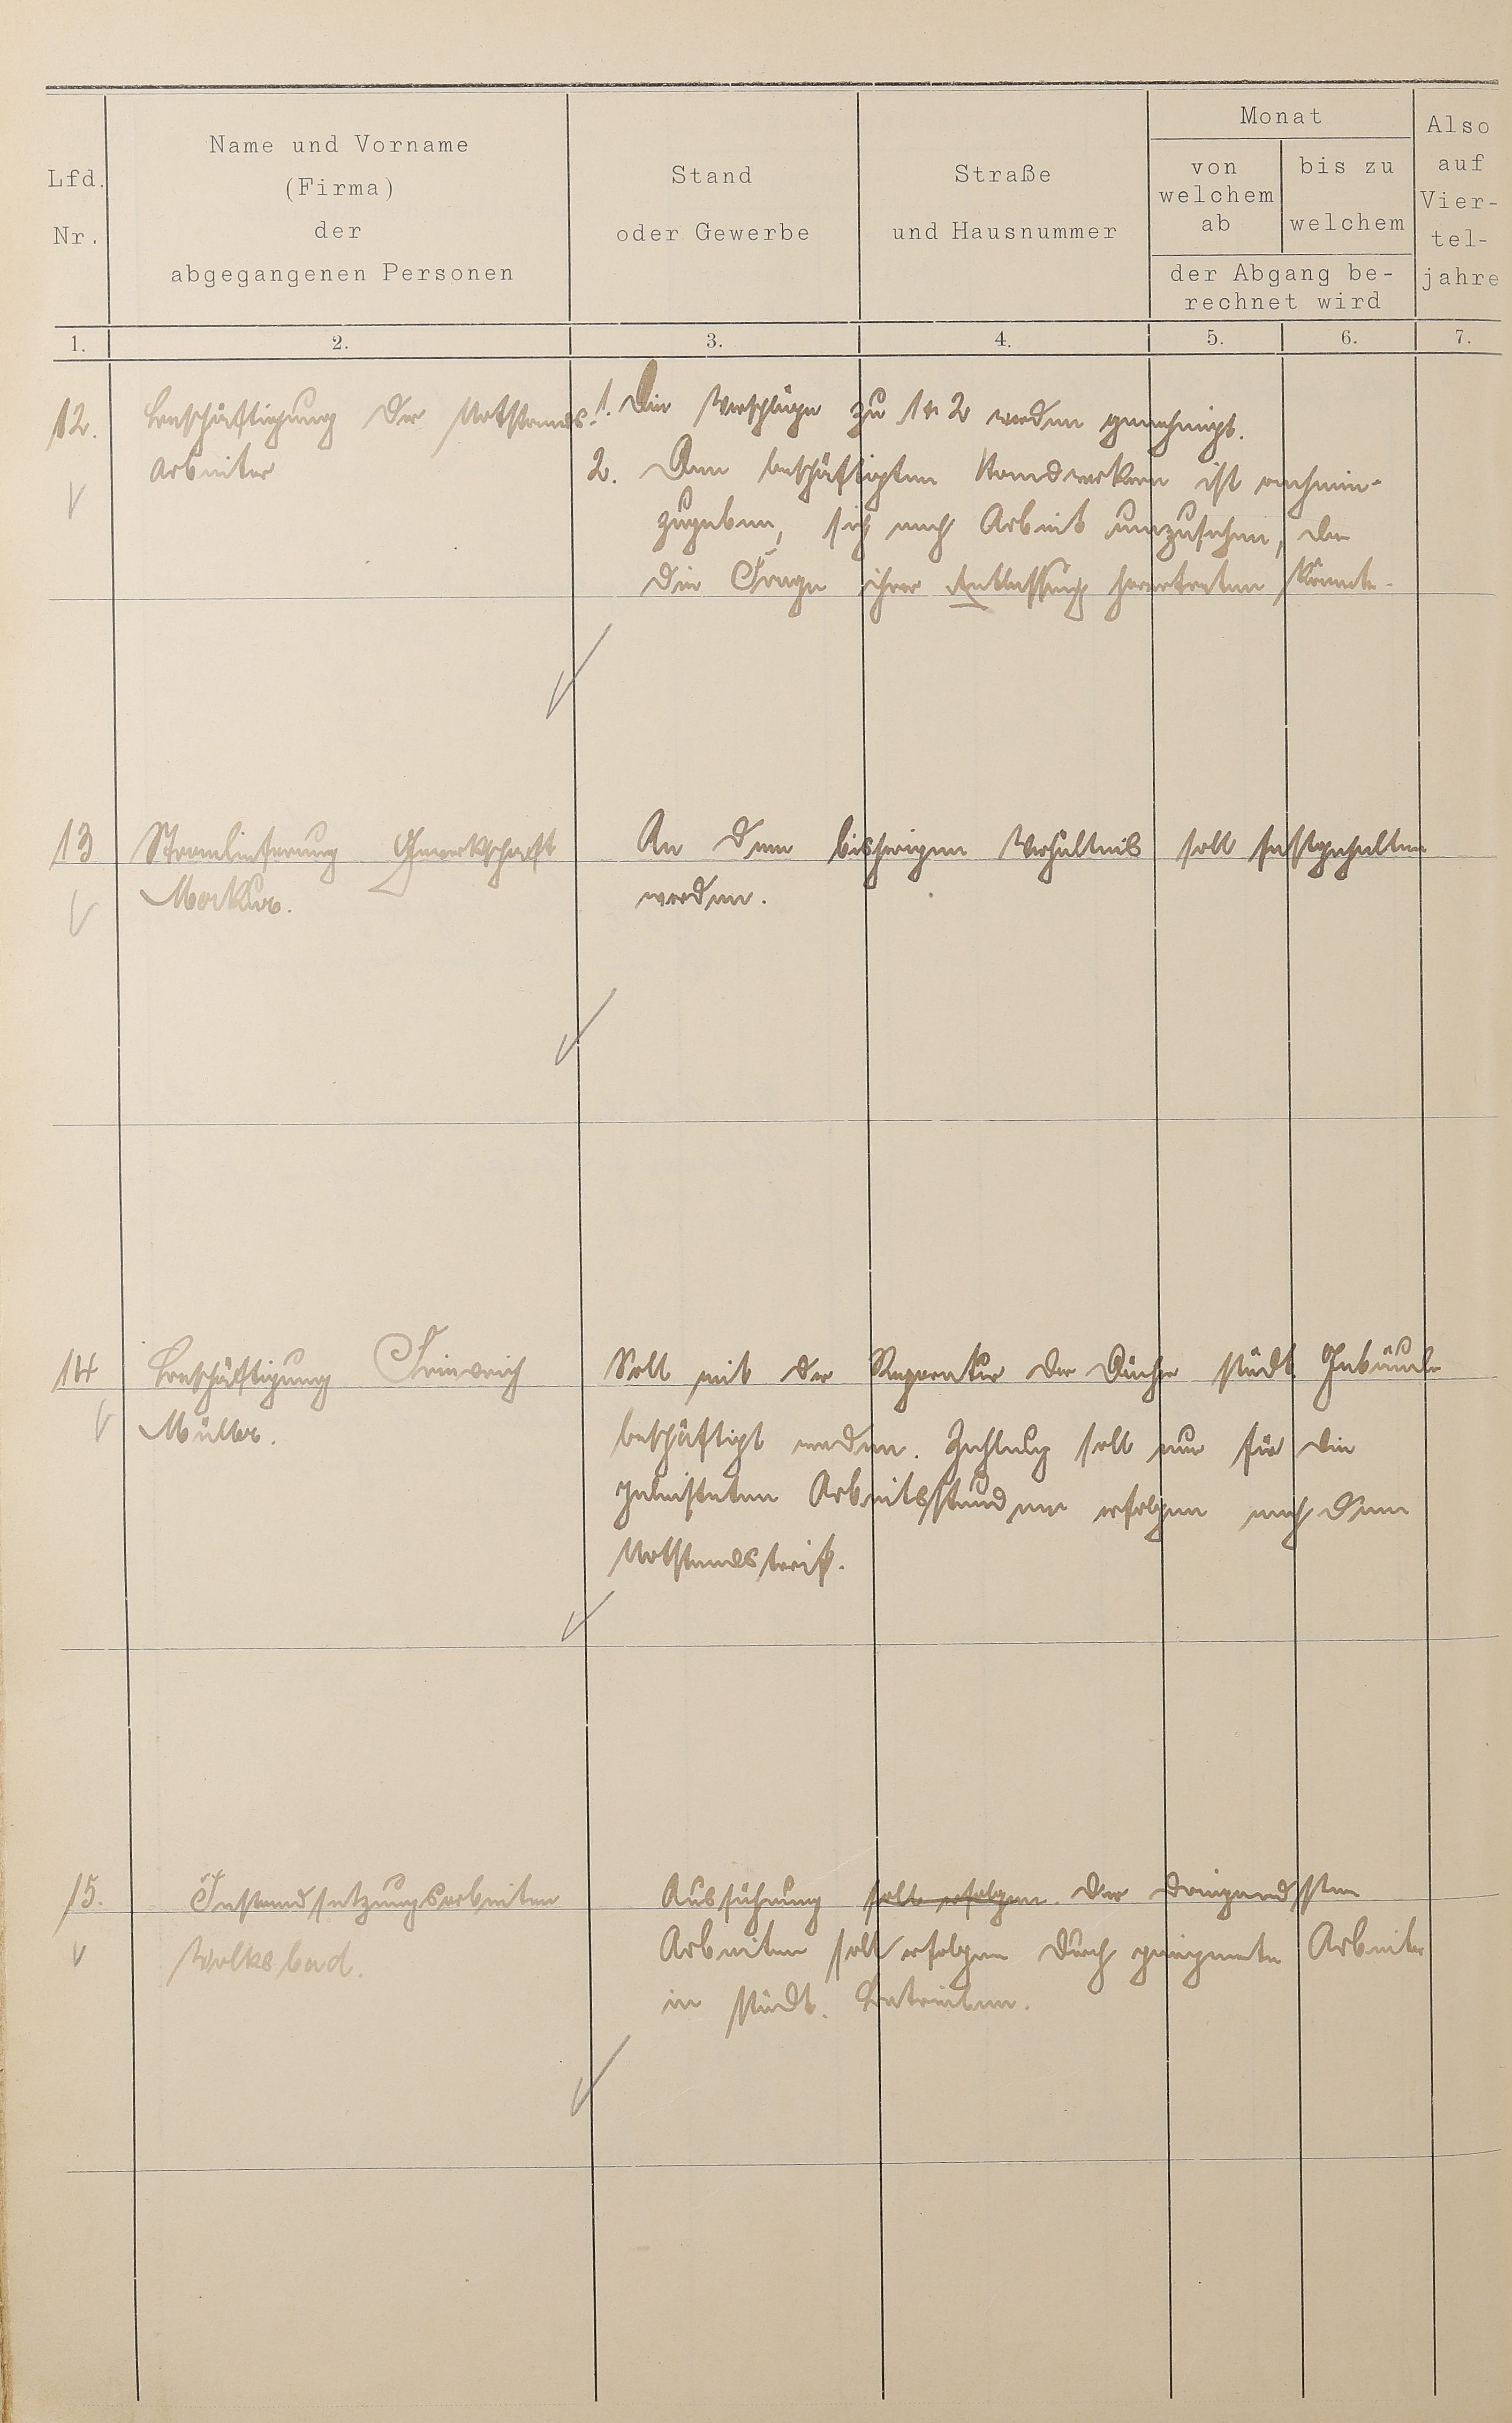 Lfd. Nr.
Name und Vorname
(Firma)
der
abgegangenen Personen
Stand
oder Gewerbe
Straße
und Hausnummer
Monat
von
welchem
ab
bis zu
welchem
der Abgang be-
rechnet wird
Also
auf
Vier-
tel-
jahre
1. 2. 3. 4. 5. 6. 7.
12. Beschäftigung der Notstands-
arbeiter
1. Die Vorschläge zu 1 u. 2 werden genehmigt.
2. Den beschäftigten Handwerkern ist anheim-
zugeben, sich nach Arbeit umzusehen, da
die Frage ihrer Entlassung herantreten könnte.
13 Stromlieferung Gewerkschaft
Merkur.
An dem bisherigen Verhältnis soll festgehalten
werden.
14 Beschäftigung Heinrich
Müller.
Soll mit der Reparatur der Dächer städt. Gebäude
beschäftigt werden. Zahlung soll nur für die
geleisteten Arbeitsstunden erfolgen nach dem
Notstandstarif.
15. Instandsetzungsarbeiten
Volksbad.
Ausführung soll erfolgen. der dringendsten
Arbeiten soll erfolgen durch geeignete Arbeiter
in städt. Betrieben.